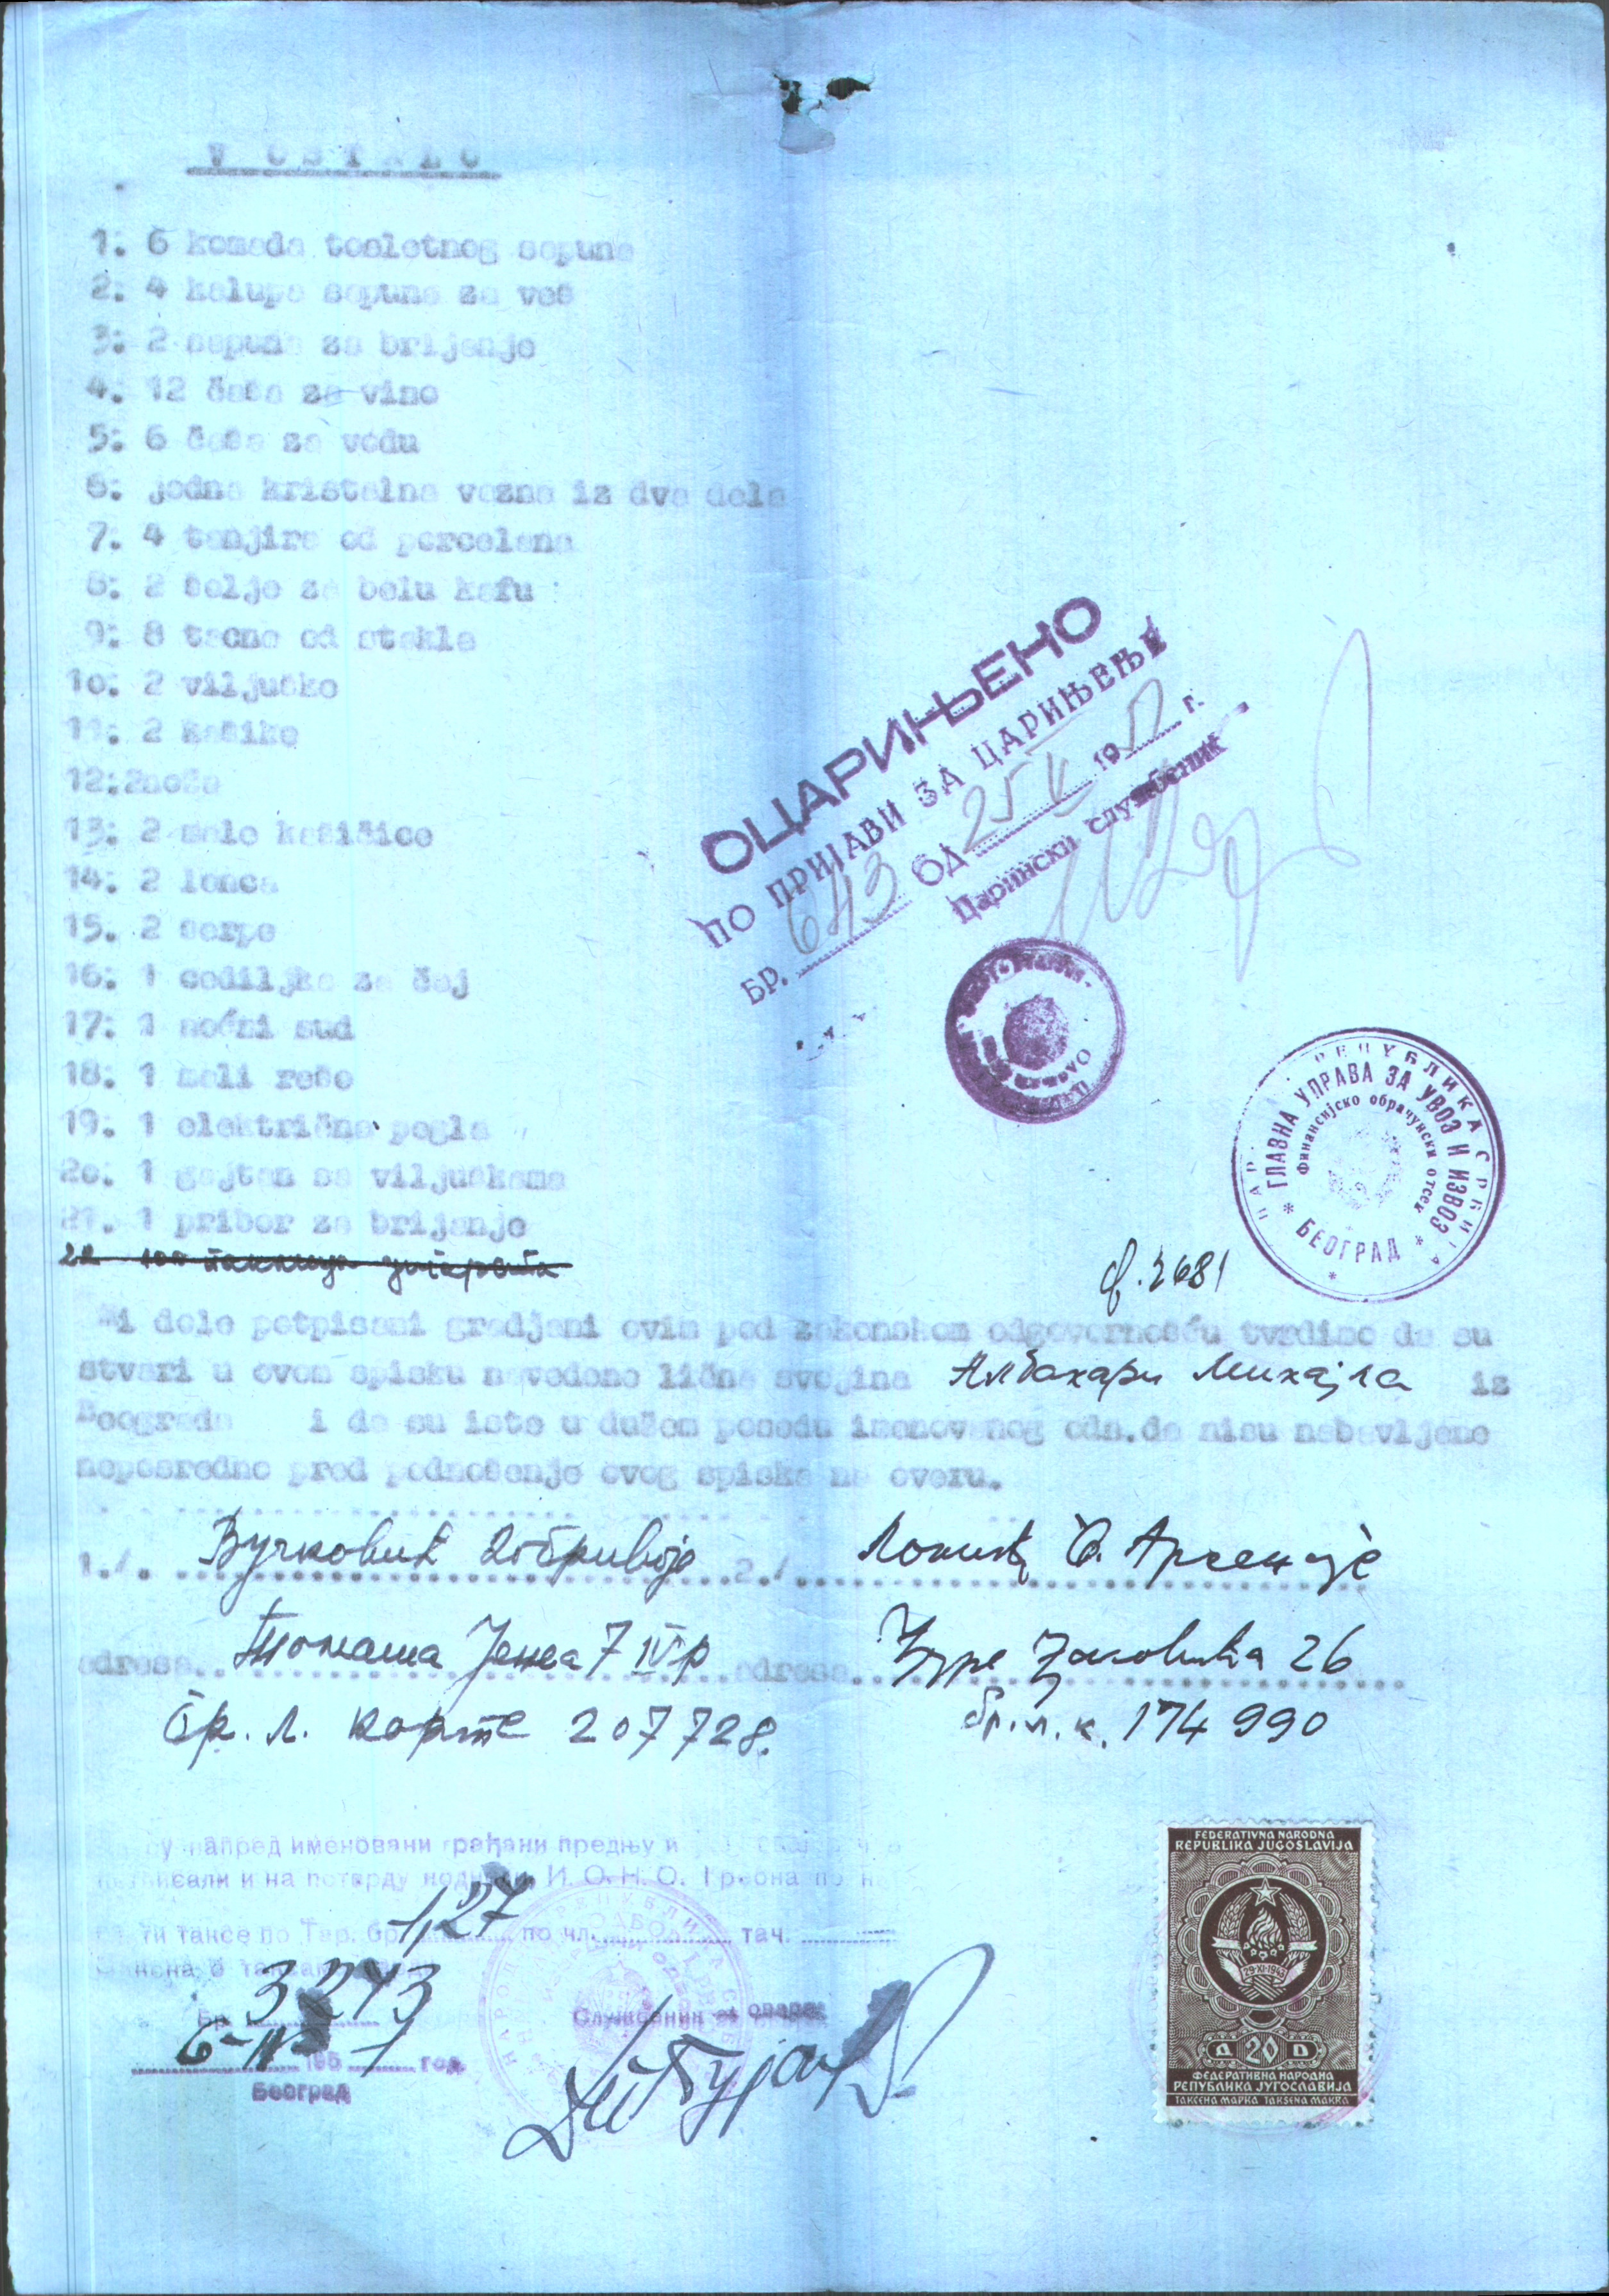 V OSTALO
1: 6 komada toaletnog sapuna
2: 4 kalupa sapuna za veš
3: 2 sapuna za brijanje
4. 12 čaša za vino
5: 6 čaša za vodu
6: jedna kristalna vazna iz dva dela
7. 4 tanjira od porcelana
8: 2 šolje za belu kafu
9: 8 tacne od stakla
1o: 2 viljuške
11: 2 kašike
12:2noža
13: 2 male kašičice
14: 2 lonca
15. 2 šerpe
16: 1 cediljka za čaj
17: 1 noćni sud
18: 1 mali rešo
19: 1 električna pegla
2o: 1 gajtan sa viljuškama
21. 1 pribor za brijanje
ОЦАРИЊЕНО
ПО ПРИЈАВИ ЗА ЦАРИЊЕЊЕ
БР. 643 ОД 25 V 19 г.
Царински службеник
НАР. РЕПУБЛИКА СРБИЈА
ГЛАВНА УПРАВА ЗА УВОЗ И ИЗВОЗ
Финансијско обрачунски отсек
БЕОГРАД
ф. 2681
Mi dole potpisani gradjani ovim pod zakonskom odgovornošću tvrdimo da su
stvari u ovom spisku navedene lična svojina Албахари Михајла iz
Beograda i da su iste u dužem posedu imenovanog odn.da nisu nabavljene
neposredno pred podnošenje ovog spiska na overu.
1./. Вучковић Добривоје 2./. Арсеније
adresa.. Томаша Јежа 7 IV adresa.. Ђуре Даковића 26
Бр. л. карте 207728. Бр. л. к. 174 990
напред именовани грађани предњу и
писали и на потврду И. О. Н. О. I реона
таксе по Тар. бр. 1,27 по чл. тач.
Бр. 3243
Службеник
6-IV 195 1 год.
Београд
FEDERATIVNA NARODNA
REPUBLIKA JUGOSLAVIJA
29·XI·1943
Д 20 D
ФЕДЕРАТИВНА НАРОДНА
РЕПУБЛИКА ЈУГОСЛАВИЈА
ТАКСЕНА МАРКА TAKSENA MARKA